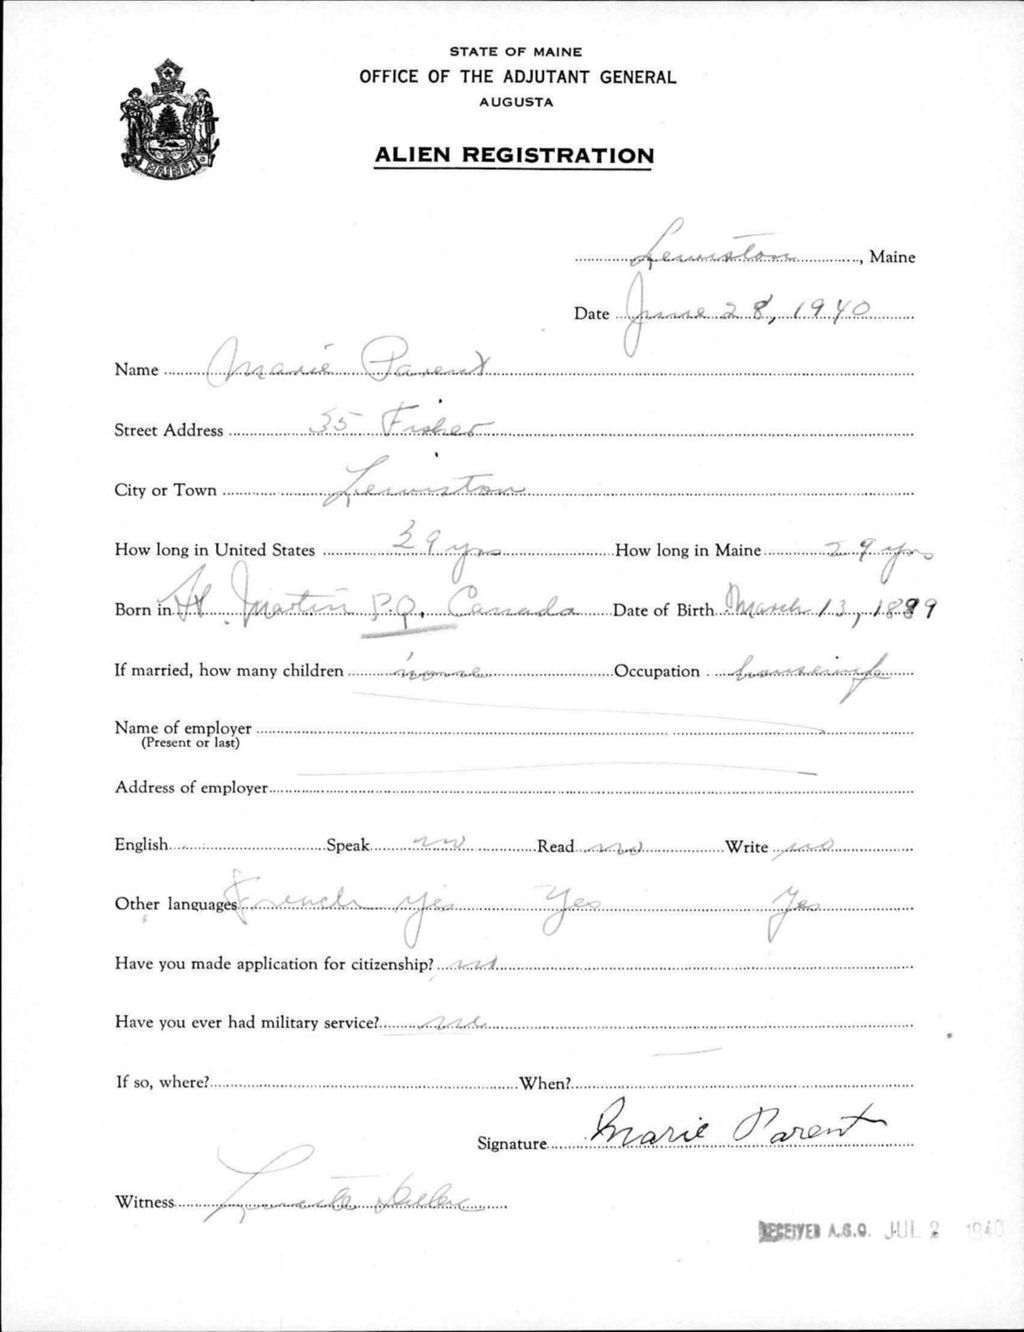 STATE OF MAINE
OFFICE OF THE ADJUTANT GENERAL
AUGUSTA
ALIEN REGISTRATION
MAINE
Lewiston, Maine
Date June 28, 1940
Name Marie Parent
Street Address 35 Fisher
City or Town Lewiston
How long in United States 29 yrs How long in Maine 29 yrs
Born in St. Martin P.Q. Canada Date of Birth March 13, 1889
If married, how many children none Occupation housewife
Name of employer
(Present or last)
Address of employer
English Speak no Read no Write no
Other languages French Yes Yes Yes
Have you made application for citizenship? no
Have you ever had military service? no
If so, where? When?
Signature Marie Parent
Witness
RECEIVED A.G.O. JUL 2 1940